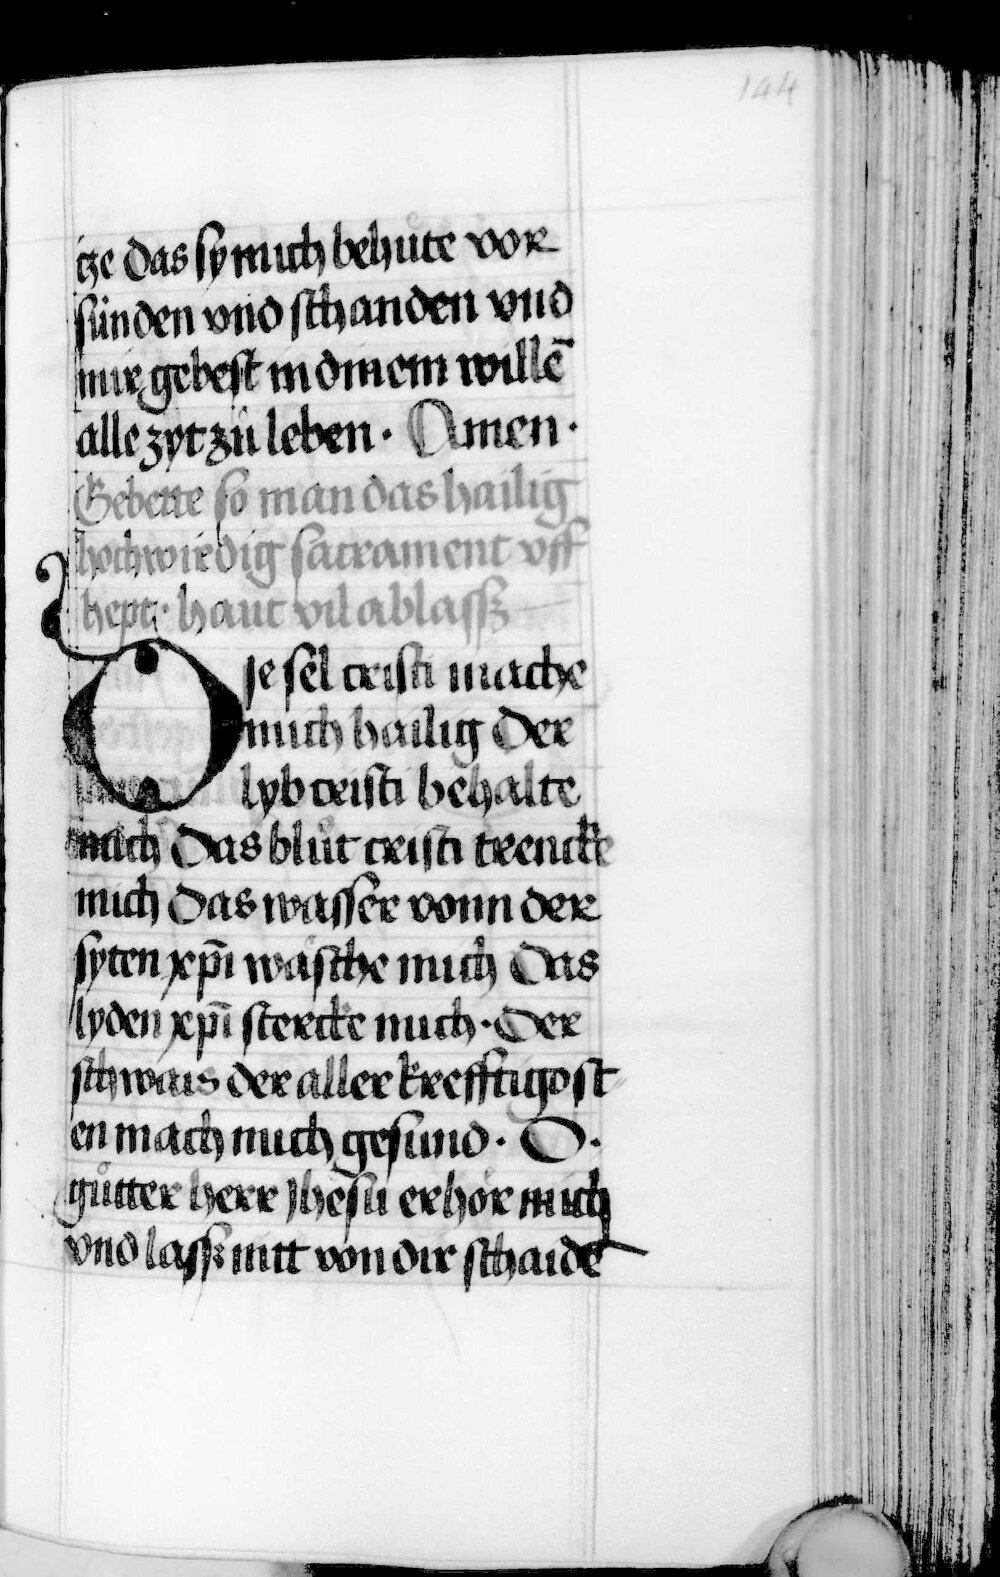 144
tze das sy mich behuͤte vor
sünden vnd schanden vnd
mir gebest in dinem willē
alle zyt zuͦ leben · Amen ·
Gebette so man das hailig
hochwirdig sacrament vff
hept · haut vil ablassz
Dje sel cristi mache
mich hailig Der
lyb cristi behalte
mich Das bluͦt cristi trencke
mich Das wasser vonn der
syten xp̄i wäsche mich Das
lyden xp̄i stercke mich · Der
schwais der aller krefftigost
en mach mich gesund · O ·
guͦtter herr Jhesu erhör mich
vnd lassz nitt von dir schaidē